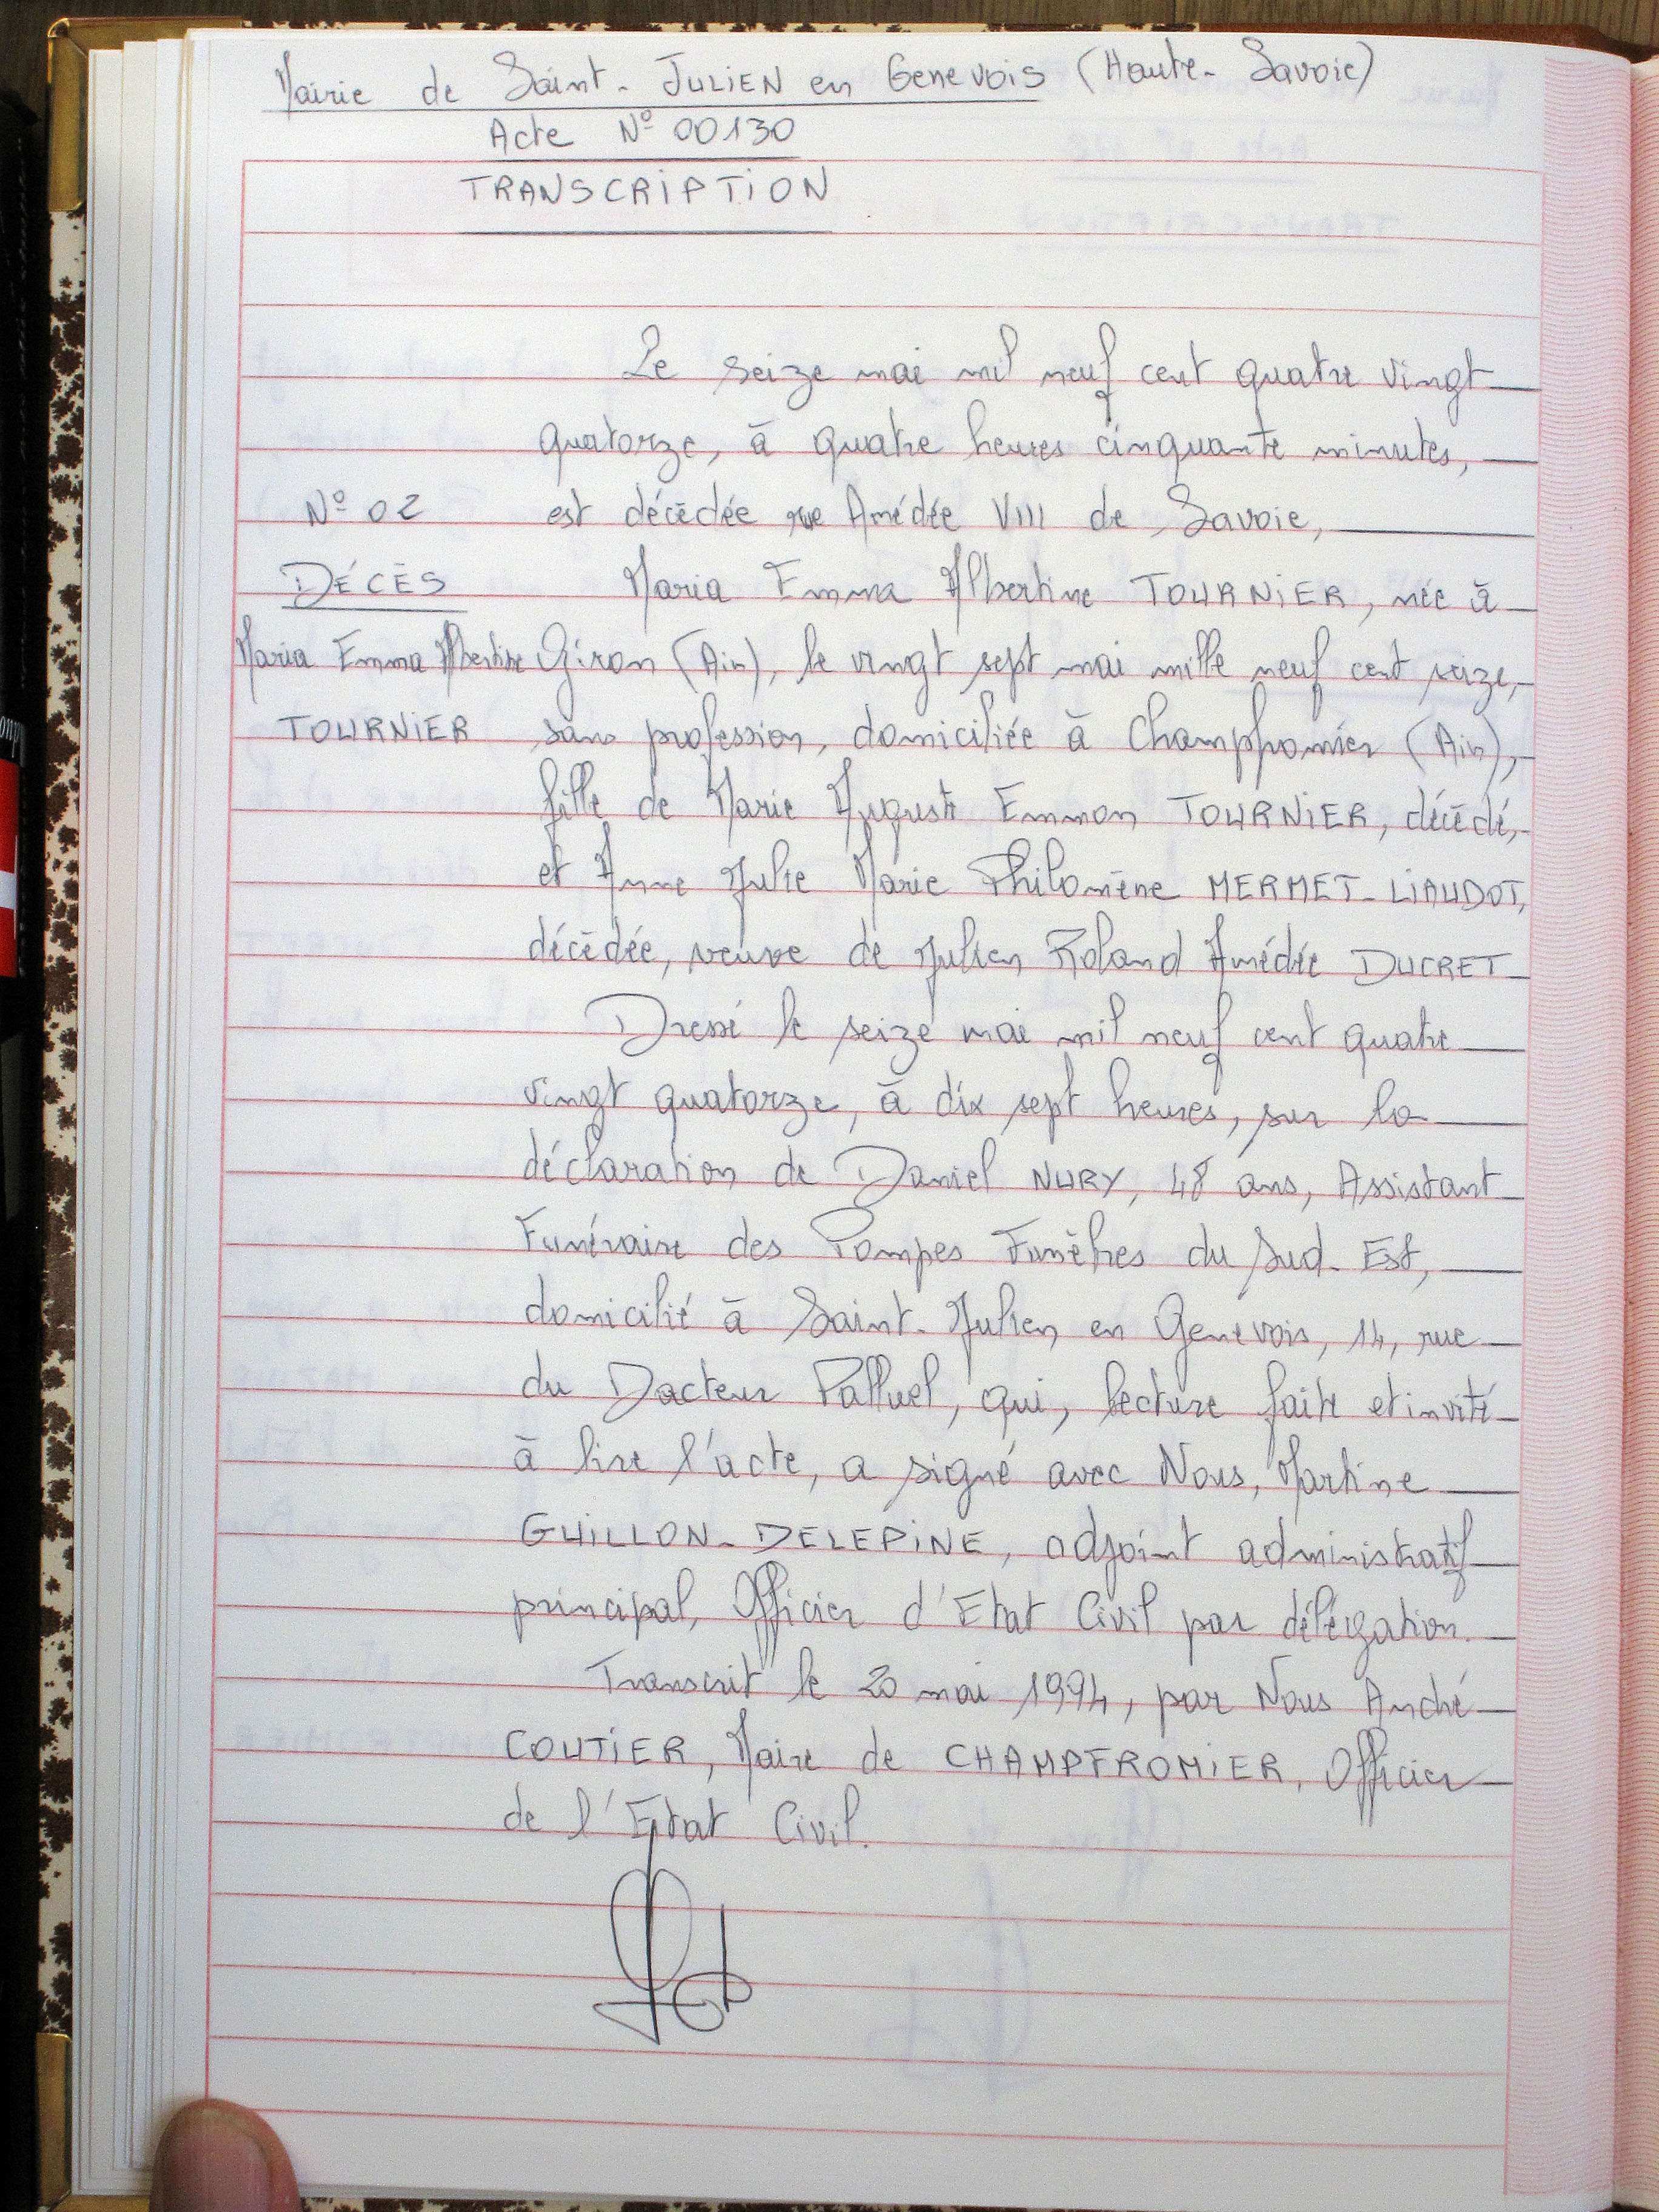 Mairie de Saint-JULIEN en Genevois (Haute-Savoie)
Acte N° 00130
TRANSCRIPTION
Le seize mai mil neuf cent quatre vingt
quatorze, à quatre heures cinquante minutes,
N° 02 est décédée rue Amédée VIII de Savoie,
DÉCÈS Maria Emma Albertine TOURNIER, née à
Maria Emma Albertine Giron (Ain), le vingt sept mai mille neuf cent seize,
TOURNIER sans profession, domiciliée à Champfromier (Ain),
fille de Marie Auguste Emmon TOURNIER, décédé,
et Anne Julie Marie Philomène MERMET-LIAUDOT,
décédée, veuve de Julien Roland Amédée DUCRET
Dressé le seize mai mil neuf cent quatre
vingt quatorze, à dix sept heures, sur la
déclaration de Daniel NURY, 48 ans, Assistant
Funéraire des Pompes Funèbres du Sud-Est,
domicilié à Saint-Julien en Genevois, 14, rue
du Docteur Palluel, qui, lecture faite et invité
à lire l'acte, a signé avec Nous, Martine
GUILLON-DELEPINE, adjoint administratif
principal, Officier d'Etat Civil par délégation.
Transcrit le 20 mai 1994, par Nous André
COUTIER, Maire de CHAMPFROMIER, Officier
de l'Etat Civil.